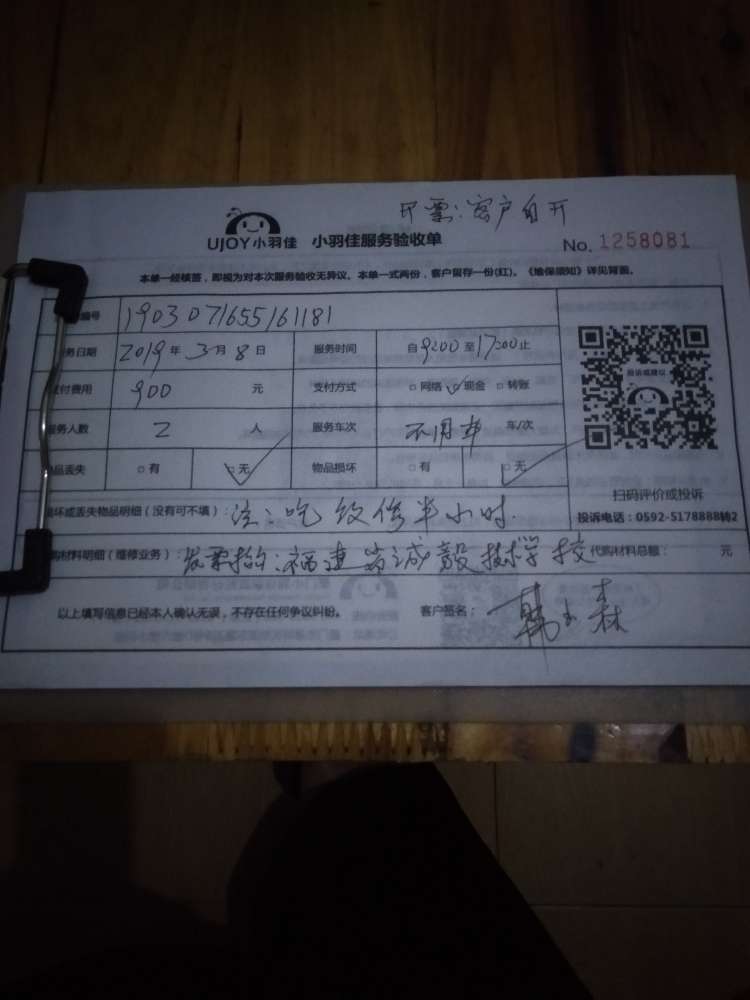 开票:客户自开
UJOY小羽佳 小羽佳服务验收单
No. 1258081
本单一经核签,即视为对本次服务验收无异议。本单一式两份,客户留存一份(红)。《维保须知》详见背面。
编号 1903071655161181
务日期 2019年3月8日 服务时间 自9:00至17:00止
付费用 900 元 支付方式 □网络 ☑现金 □转账
服务人数 2 人 服务车次 不用车 车/次
品丢失 □有 ☑无 物品损坏 □有 ☑无
投诉或建议
扫码评价或投诉
投诉电话:0592-5178888转2
损坏或丢失物品明细(没有可不填):注:吃饭停半小时.
购材料明细(维修业务):发票抬:福建省诚毅技术学校 代购材料总额: 元
以上填写信息已经本人确认无误,不存在任何争议纠纷。 客户签名:韩 森